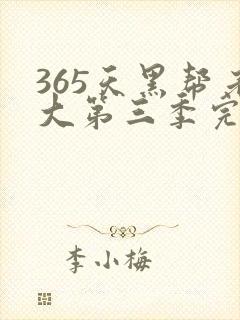 365天黑帮老
大第三季完
李小梅